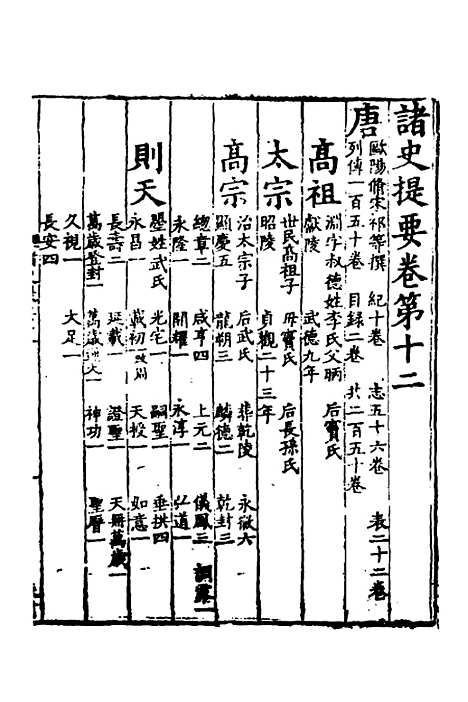 諸史提要卷第十二
唐 歐陽脩宋祁等撰 紀十卷 志五十六卷 表二十二卷
列傳一百五十卷 目録二卷 共二百五十卷
高祖 淵字叔德姓李氏父昞 后竇氏
獻陵 武德九年
太宗 世民高祖子 母竇氏 后長孫氏
昭陵 貞觀二十三年
高宗 治太宗子 后武氏 葬乾陵 永徽六
顯慶五 龍朔三 麟德二 乾封二
總章二 咸亨四 上元二 儀鳳三 調露一
永隆一 開耀一 永淳一 弘道一
則天 曌姓武氏 光宅一 嗣聖一 垂拱四
永昌一 載初一 天授二 如意一
長壽二 延載一 證聖一 天冊萬歲一
萬歲登封一 萬歲通天一 神功一 聖曆一
久視一 大足一
長安四